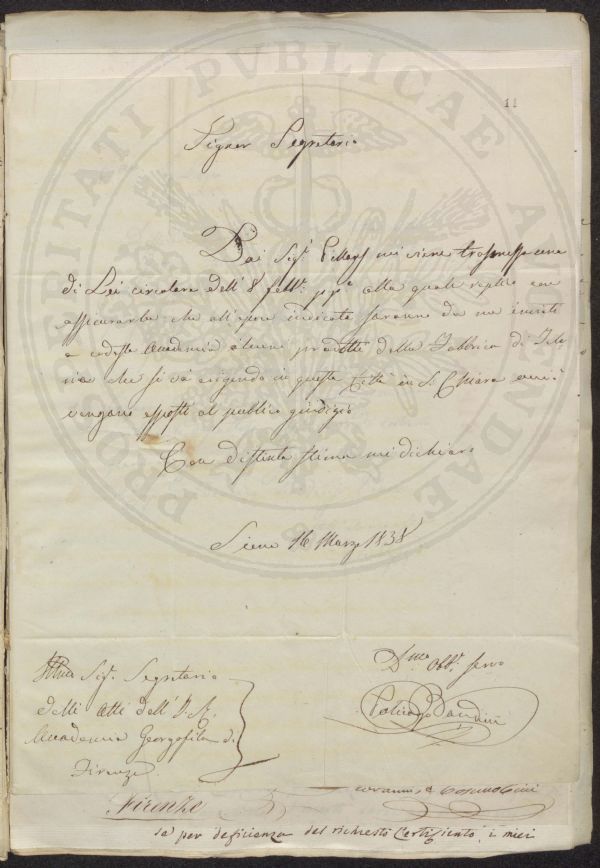 11
Signor Segretario
Dai Sigri mi viene trasmessa una
di Lei circolare dell' 8 febb.º pp.º alla quale replico con
assicurarla che all'epoca indicata saranno da me inviati
a codesta Accademia alcuni prodotti della Fabbrica di Tele
ria che si và erigendo in questa Città in S. Chiara onde
vengano esposti al publico giudizio
Con distinta stima mi dichiaro
Siena 16 Marzo 1838
D.mo Obb.º Servo
Policarpo Bandini
Illmo Sig.r Segretario
delli Atti dell' I. R.
Accademia Georgofila di
Firenze
Firenze
Cosimo
da per deficienza del richiesto Certificato, i miei
PROSPERITATI PUBLICAE AUGENDAE